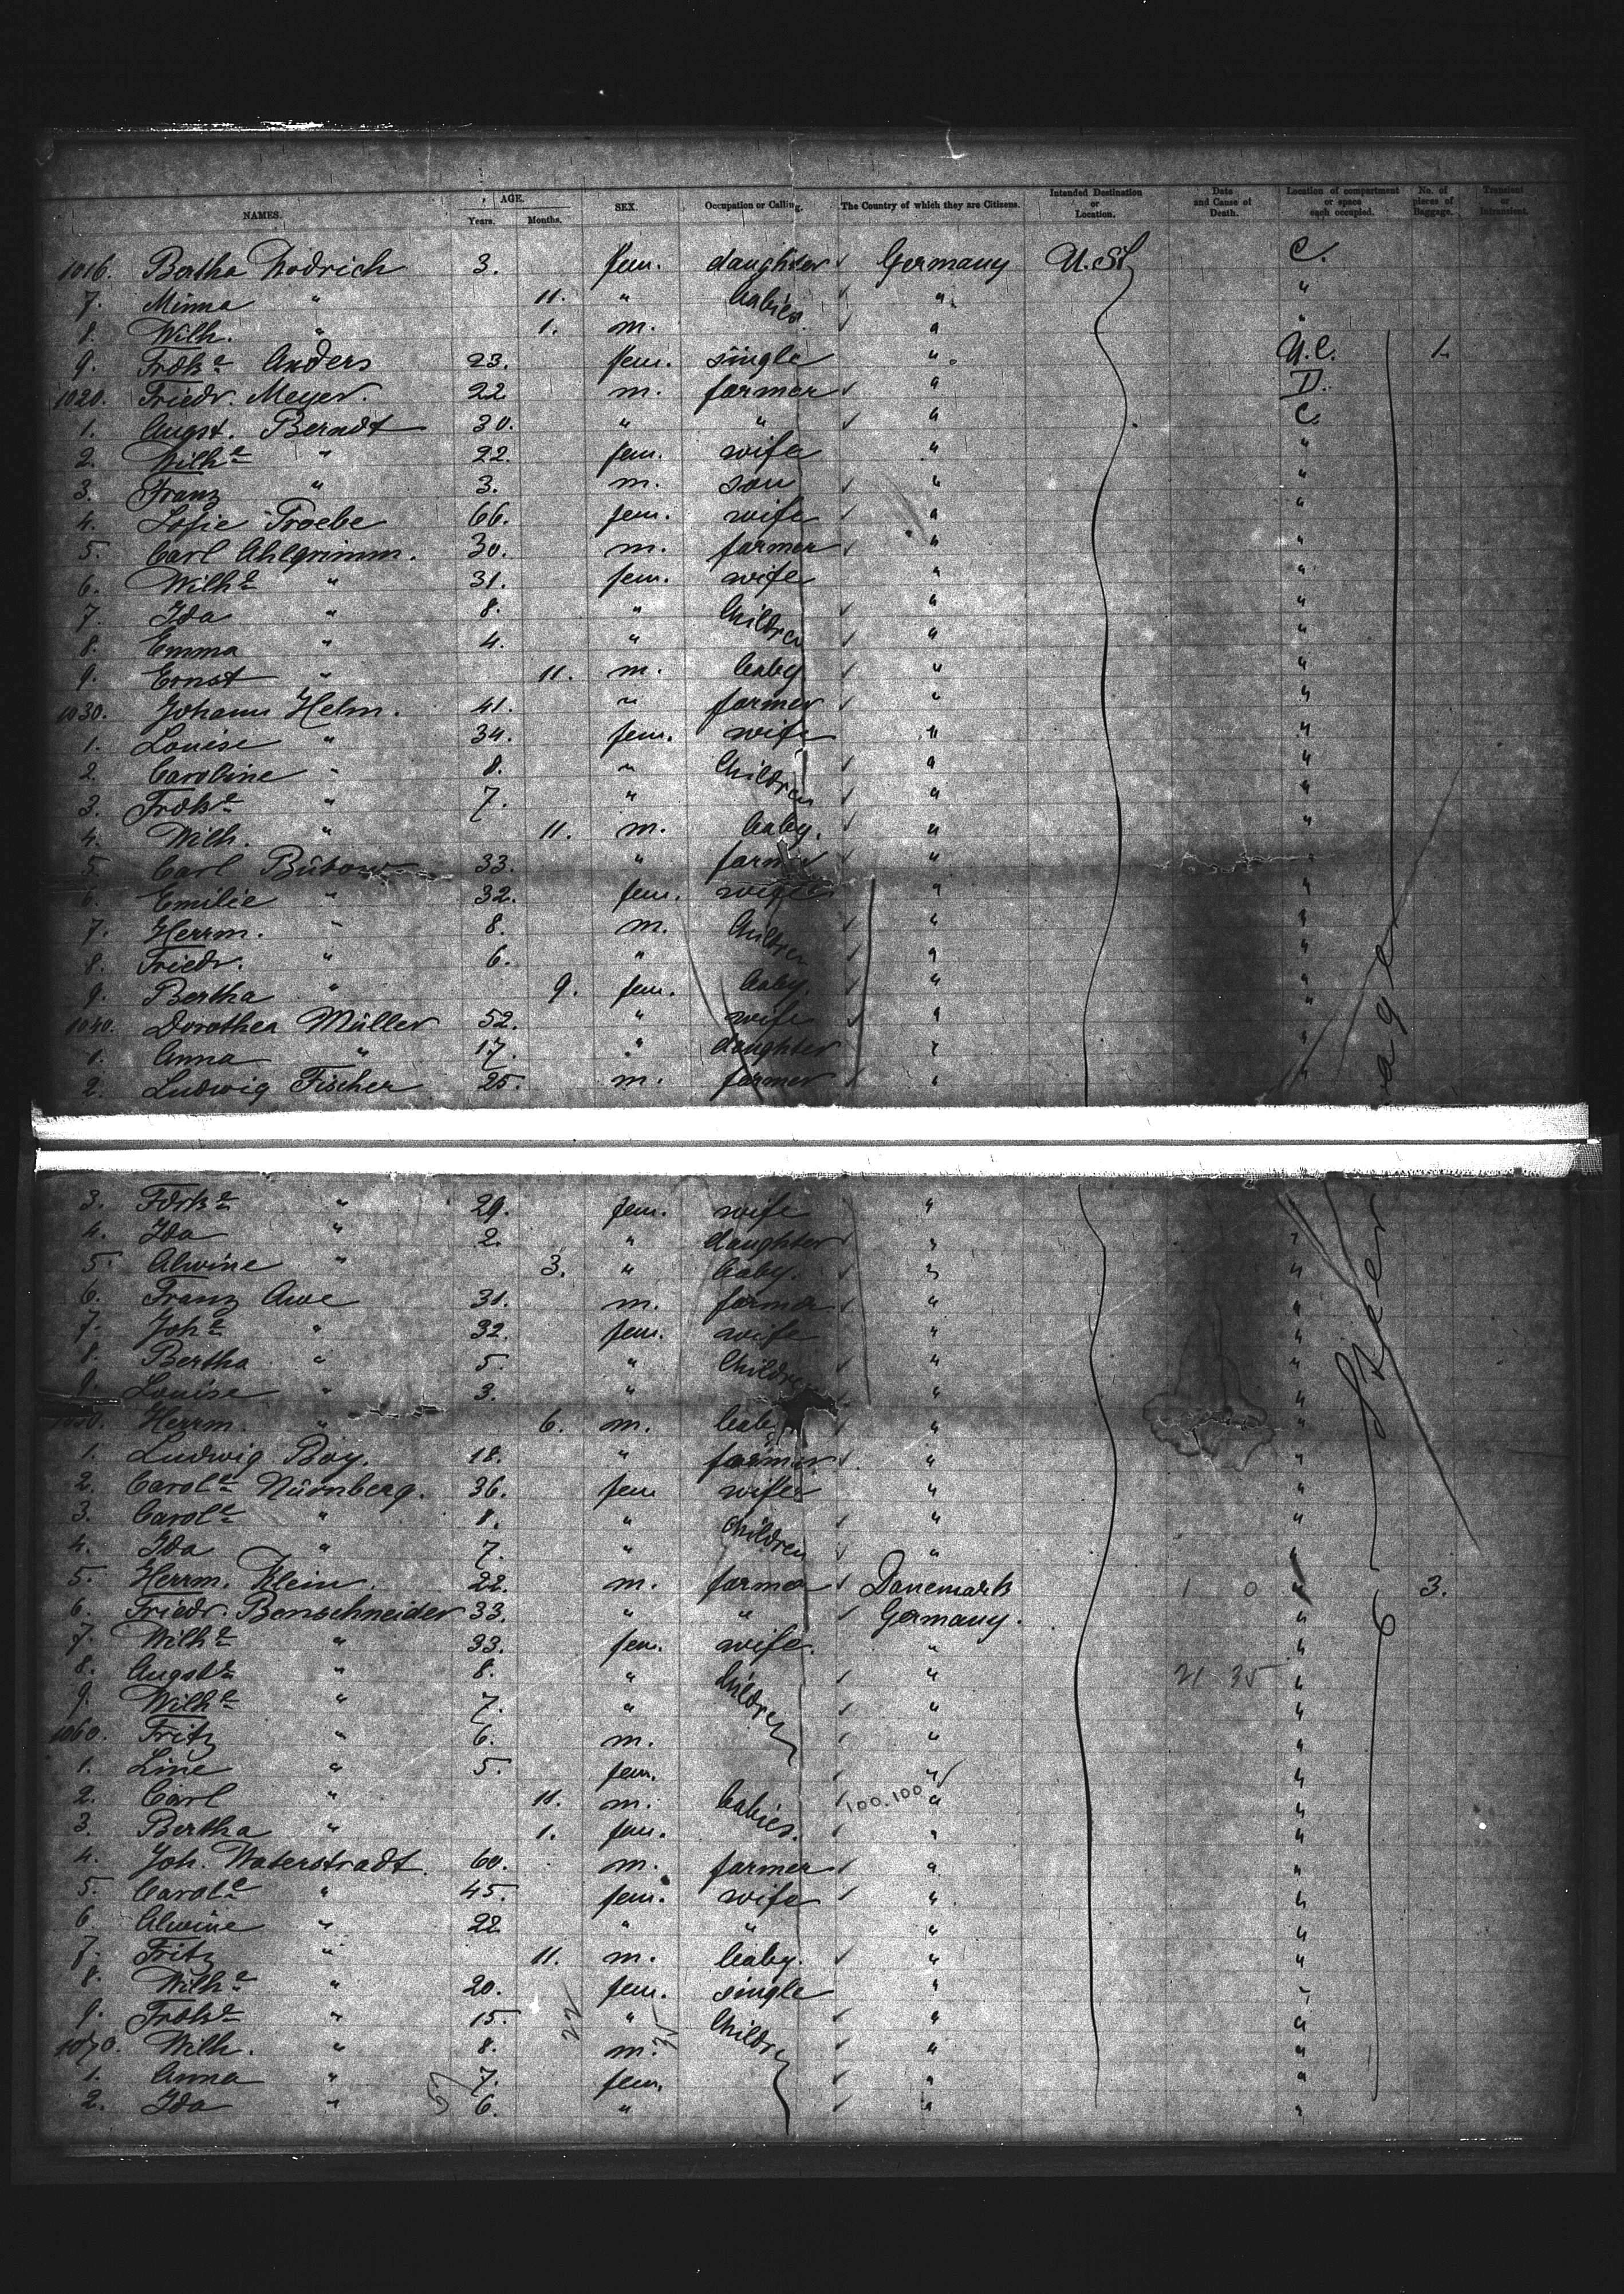 NAMES. AGE. Years. Months. SEX. Occupation or Calling. The Country of which they are Citizens. Intended Destination or Location. Date and Cause of Death. Location of compartment or space each occupied. No. of pieces of Baggage. Transient or Intransient.
1016. Bertha Wodrich 3. fem. daughter Germany U. St. C.
7. Minna " 11. " babies " "
8. Wilh. " 1. m. " "
9. Frdke Anders 23. fem. single " U.C. 1.
1020. Friedr. Meyer. 22 m. farmer " D.
1. Augst. Berndt 30. " " " C.
2. Wilhe " 22. fem. wife " "
3. Franz " 3. m. son " "
4. Sofie Troebe 66. fem. wife " "
5. Carl Ahlgrimm. 30. m. farmer " "
6. Wilhe " 31. fem. wife " "
7. Ida " 8. " Children " "
8. Emma " 4. " " "
9. Ernst " 11. m. baby " "
1030. Johann Helm. 41. " farmer " "
1. Louise " 34. fem. wife " "
2. Caroline " 8. " Children " "
3. Frdke " 7. " " "
4. Wilh. " 11. m. baby. " "
5. Carl Bütow 33. " farmer " "
6. Emilie " 32. fem. wife " "
7. Herrm. " 8. m. Children " "
8. Friedr. " 6. " " "
9. Bertha " 9. fem. baby. " "
1040. Dorothea Müller 52. " wife " "
1. Anna " 17. " daughter " "
2. Ludwig Fischer 25. m. farmer " "
3. Fdrke " 29. fem. wife "
4. Ida " 2. " daughter " "
5. Alwine " 3. " baby. " "
6. Franz Awe 31. m. farmer " "
7. Johe " 32. fem. wife " "
8. Bertha " 5. " Children " "
9. Louise " 3. " " "
1050. Herrm. " 6. m. baby " "
1. Ludwig Boy. 18. " farmer " "
2. Carole Nürnberg. 36. fem wife " "
3. Carole " 8. " Children " "
4. Ida " 7. " " "
5. Herrm. Klein. 22. m. farmer Danemark 1 0 " 3.
6. Friedr. Bonschneider 33. " " Germany. "
7. Wilhe " 33. fem. wife. " "
8. Augste " 8. " Children " 21 35 "
9. Wilhe " 7. " " "
1060. Fritz " 6. m. " "
1. Line " 5. fem. " "
2. Carl " 11. m. babies. 100.100 " "
3. Bertha " 1. fem. " "
4. Joh. Waterstradt. 60. m. farmer " "
5. Carole " 45. fem. wife " "
6 Alwine " 22 " " " "
7. Fritz " 11. m. baby. " "
8. Wilhe " 20. fem. single " "
9. Frdke " 15. " Children " "
1070. Wilh. " 8. m. " "
1. Anna " 7. fem. " "
2. Ida " 6. " " "